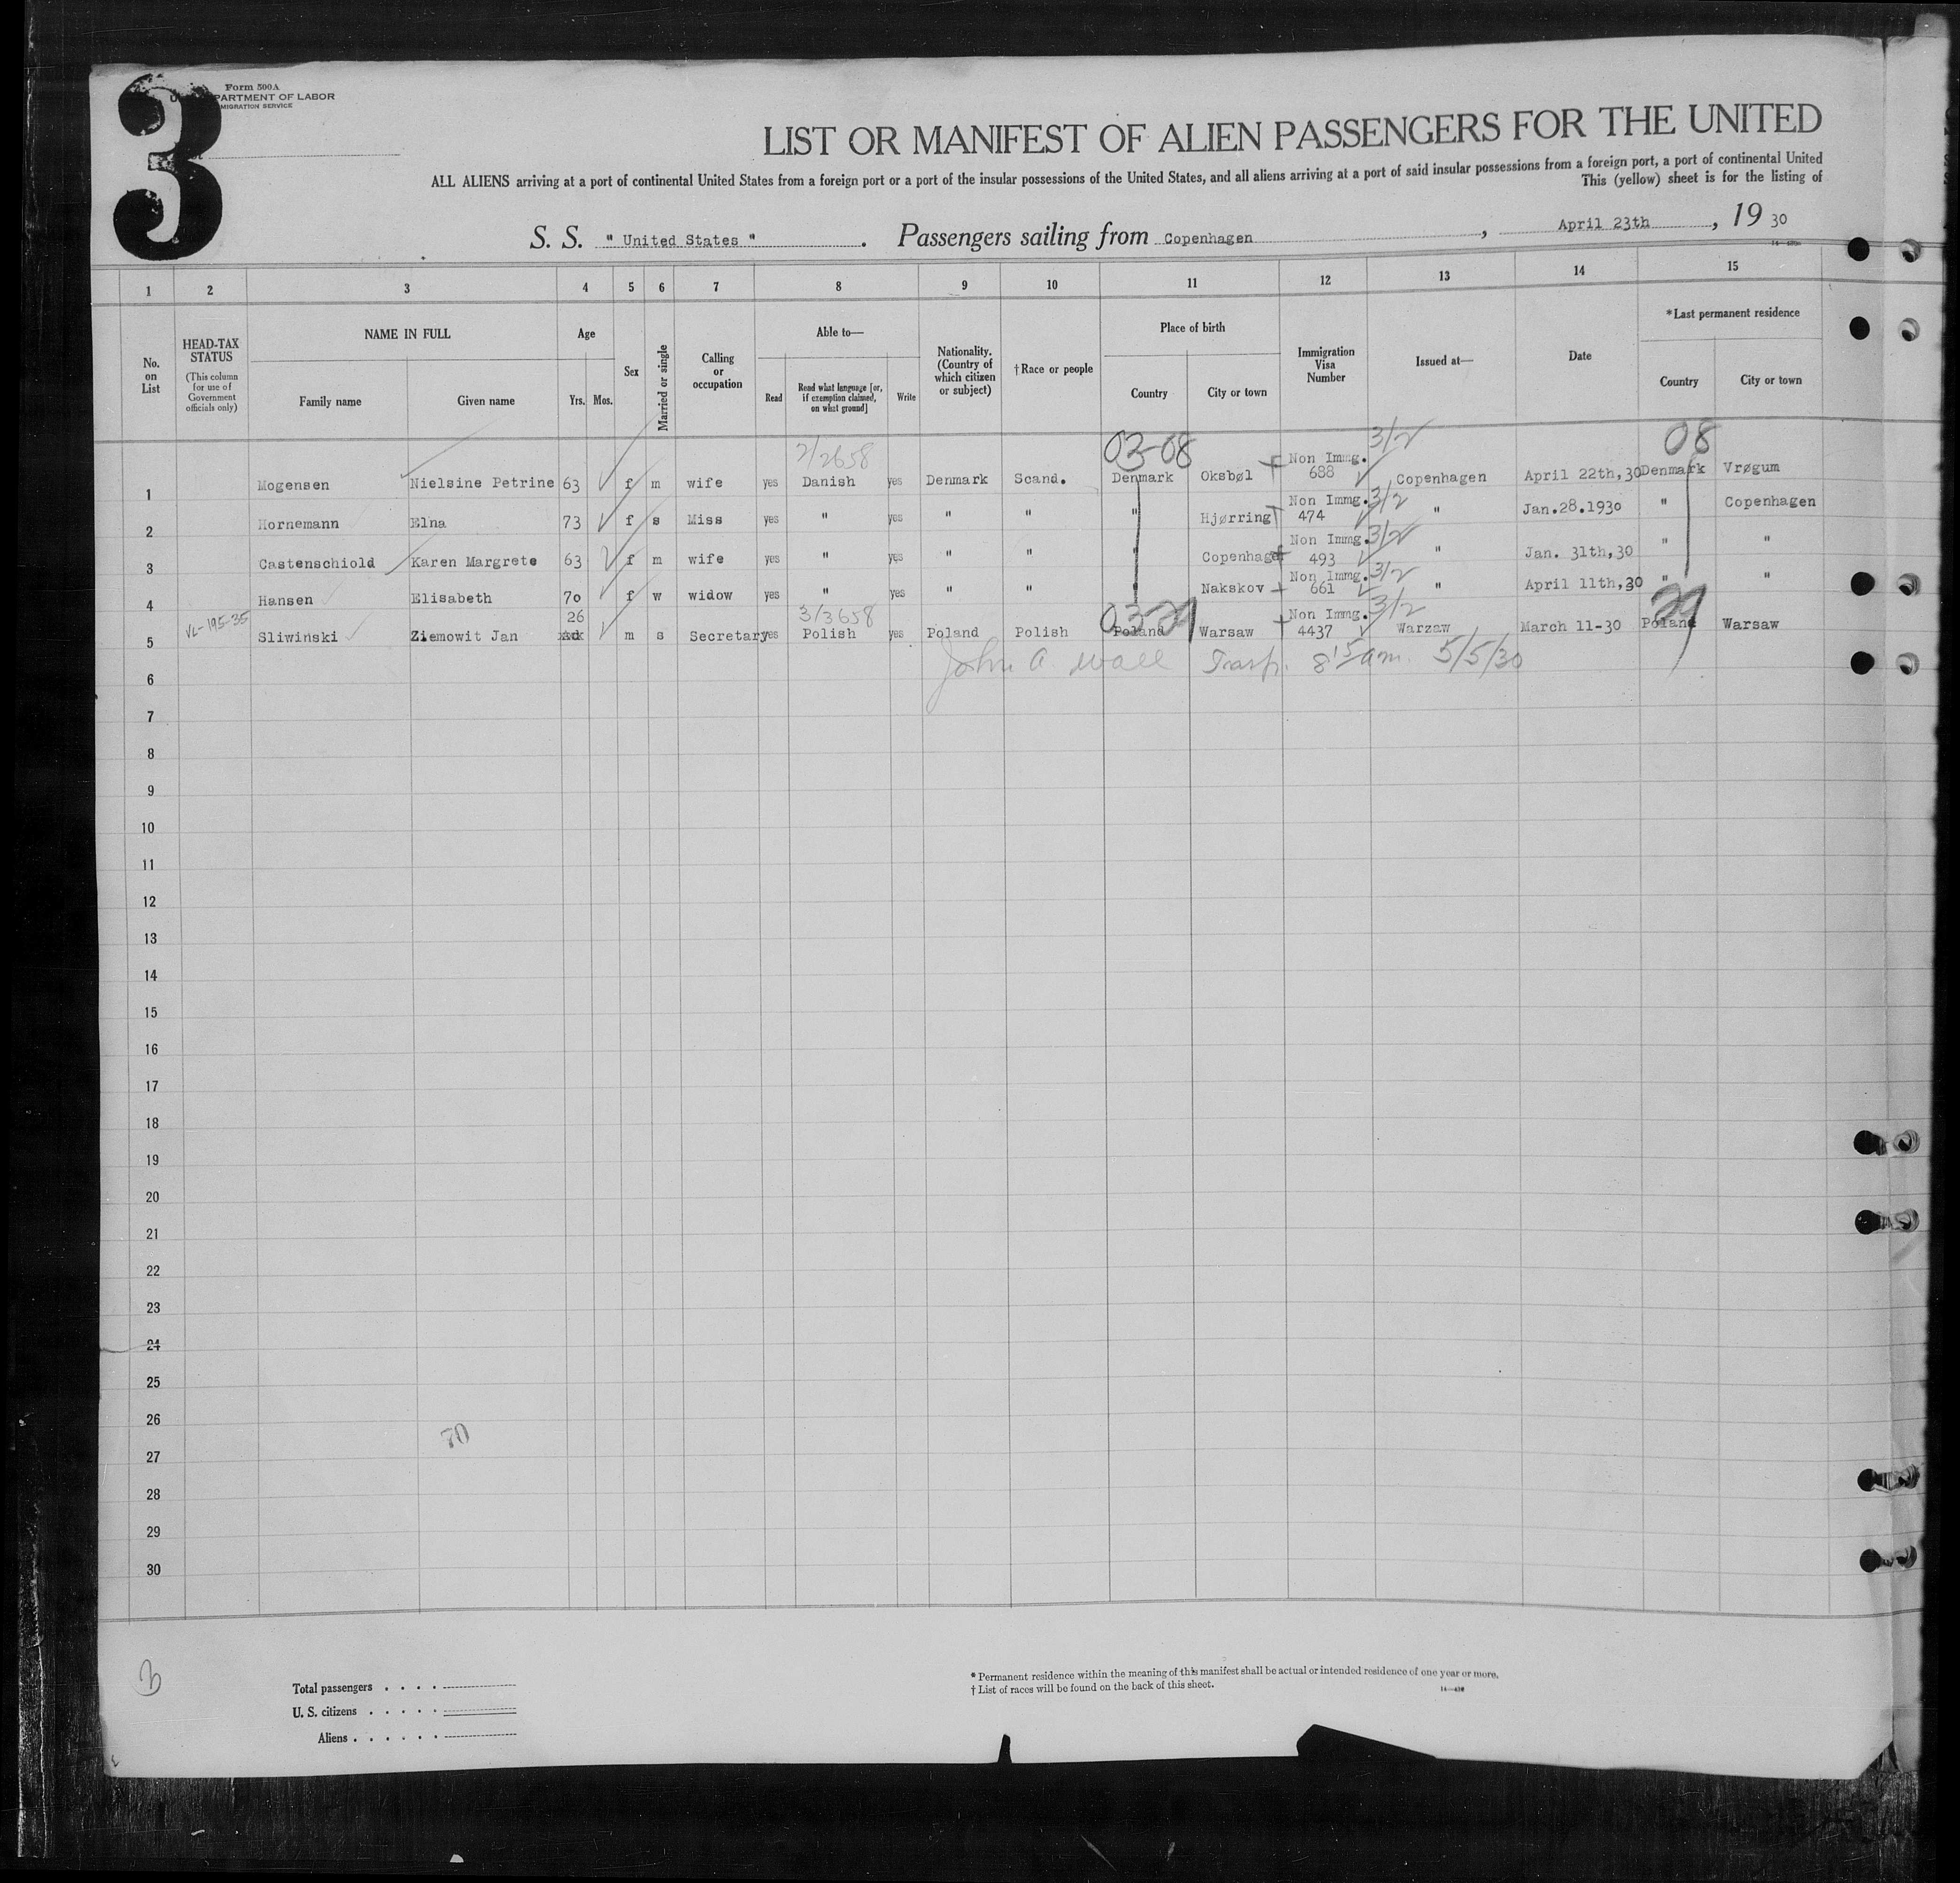 3
Form 500A
U. S. DEPARTMENT OF LABOR
IMMIGRATION SERVICE
LIST OR MANIFEST OF ALIEN PASSENGERS FOR THE UNITED
ALL ALIENS arriving at a port of continental United States from a foreign port or a port of the insular possessions of the United States, and all aliens arriving at a port of said insular possessions from a foreign port, a port of continental United
This (yellow) sheet is for the listing of
S. S. " United States " . Passengers sailing from Copenhagen , April 23th , 19 30
1 2 3 4 5 6 7 8 9 10 11 12 13 14 15
No. on List
HEAD-TAX STATUS
(This column for use of Government officials only)
NAME IN FULL
Family name
Given name
Age
Yrs. Mos.
Sex
Married or single
Calling or occupation
Able to—
Read
Read what language [or, if exemption claimed, on what ground]
Write
Nationality. (Country of which citizen or subject)
†Race or people
Place of birth
Country
City or town
Immigration Visa Number
Issued at—
Date
*Last permanent residence
Country
City or town
2/2658 03-08 3/2 08
1 Mogensen Nielsine Petrine 63 f m wife yes Danish yes Denmark Scand. Denmark Oksbøl Non Immg. 688 Copenhagen April 22th,30 Denmark Vrøgum
2 Hornemann Elna 73 f s Miss yes " yes " " " Hjørring Non Immg. 474 3/2 " Jan.28.1930 " Copenhagen
3 Castenschiold Karen Margrete 63 f m wife yes " yes " " " Copenhagen Non Immg. 493 3/2 " Jan. 31th,30 " "
4 Hansen Elisabeth 70 f w widow yes " yes " " " Nakskov Non Immg. 661 3/2 " April 11th,30 " "
VL-195-35 26 3/3658 03-29 3/2 29
5 Sliwiński Ziemowit Jan m s Secretary yes Polish yes Poland Polish Poland Warsaw Non Immg. 4437 Warzaw March 11-30 Poland Warsaw
John A Wall Trasp. 8 15 am. 5/5/30
6
7
8
9
10
11
12
13
14
15
16
17
18
19
20
21
22
23
24
25
26
27
28
29
30
* Permanent residence within the meaning of this manifest shall be actual or intended residence of one year or more.
† List of races will be found on the back of this sheet.
Total passengers . . . .
U. S. citizens . . . . .
Aliens . . . . . .